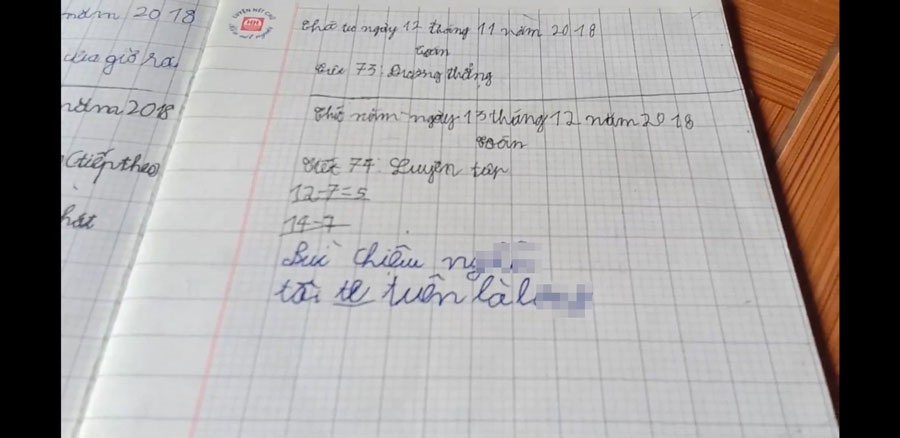 năm 2018
giờ ra
năm 2018
(tiếp theo)
hát
LUYỆN NÉT CHỮ
HH
RÈN NẾT NGƯỜI
Thứ tư ngày 12 tháng 11 năm 2018
toán
Tiết 73: Đường thẳng
Thứ năm ngày 13 tháng 12 năm 2018
toán
Tiết 74: Luyện tập
12-7=5
14-7
Bùi chiêu
tôi tên là